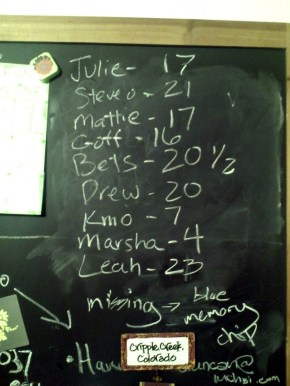 Julie - 17
Steveo - 21
Mattie - 17
Goff - 16
Bets - 20 1/2
Drew - 20
Kmo - 7
Marsha - 4
Leah - 23
missing → blue
memory
chip
Cripple Creek,
Colorado
037